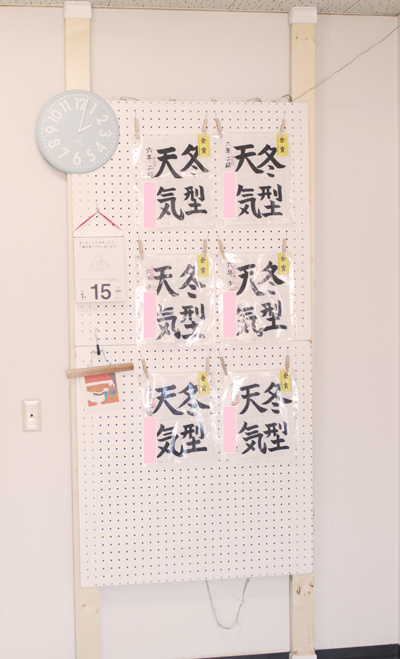 12
1
2
3
4
5
6
7
8
9
10
11
1
15
金賞
冬型
天気
六年 二段
金賞
冬型
天気
六年 二段
金賞
冬型
天気
六年
金賞
冬型
天気
六年
金賞
冬型
天気
金賞
冬型
天気